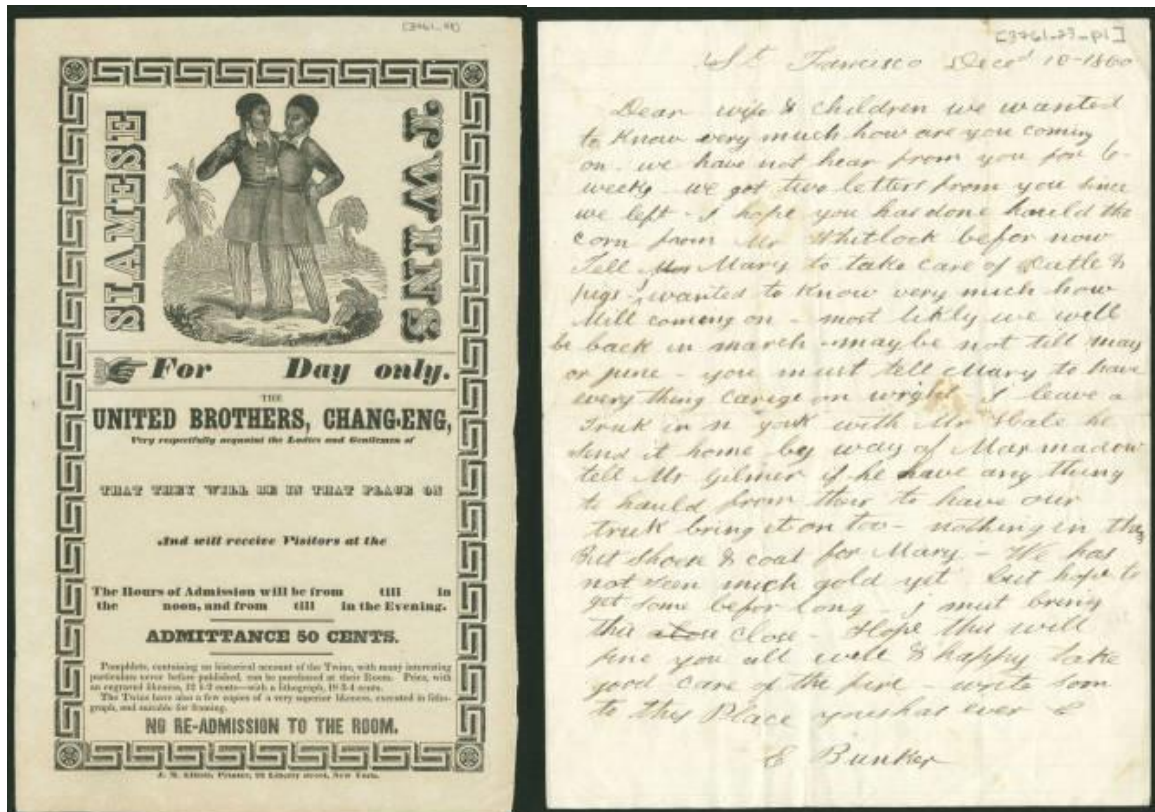 [3761_
SIAMESE TWINS
For Day only.
THE
UNITED BROTHERS, CHANG-ENG,
Very respectfully acquaint the Ladies and Gentlemen of
THAT THEY WILL BE IN THAT PLACE ON
And will receive Visitors at the
The Hours of Admission will be from till in
the noon, and from till in the Evening.
ADMITTANCE 50 CENTS.
Pamphlets, containing an historical account of the Twins, with many interesting
particulars never before published, can be purchased at their Room. Price, with
an engraved likeness, 12 1-2 cents—with a lithograph, 18 3-4 cents.
The Twins have also a few copies of a very superior likeness, executed in litho-
graph, and suitable for framing.
NO RE-ADMISSION TO THE ROOM.
J. M. Elliott, Printer, Liberty street, New York.
[3761_23_p1]
Francisco 10-1860
Dear wife & children we wanted
to know very much how are you coming
on. we have not hear from you for 6-
weeks we got two letters from you since
we left - I hope you has done hauld the
corn from Mr Whitlock befor now
Tell Mary to take care of Catle &
pigs - I wanted to know very much how
Mill coming on - most likely we will
be back in march - maybe not till may
or june - you must tell Mary to have
every thing on wright - I leave a
Truk in N york with Mr Hale he
Send it home by way of
tell Mr Gilmer if he have any thing
to hauld from ther to have our
truk bring it on too - nothing in
But Shoese & coat for Mary - We has
not seen much gold yet but hope to
get some befor long - j must bring
this close - Hope this will
fine you all well & happy take
good care of the fire write soon
to this Place as ever
E Bunker